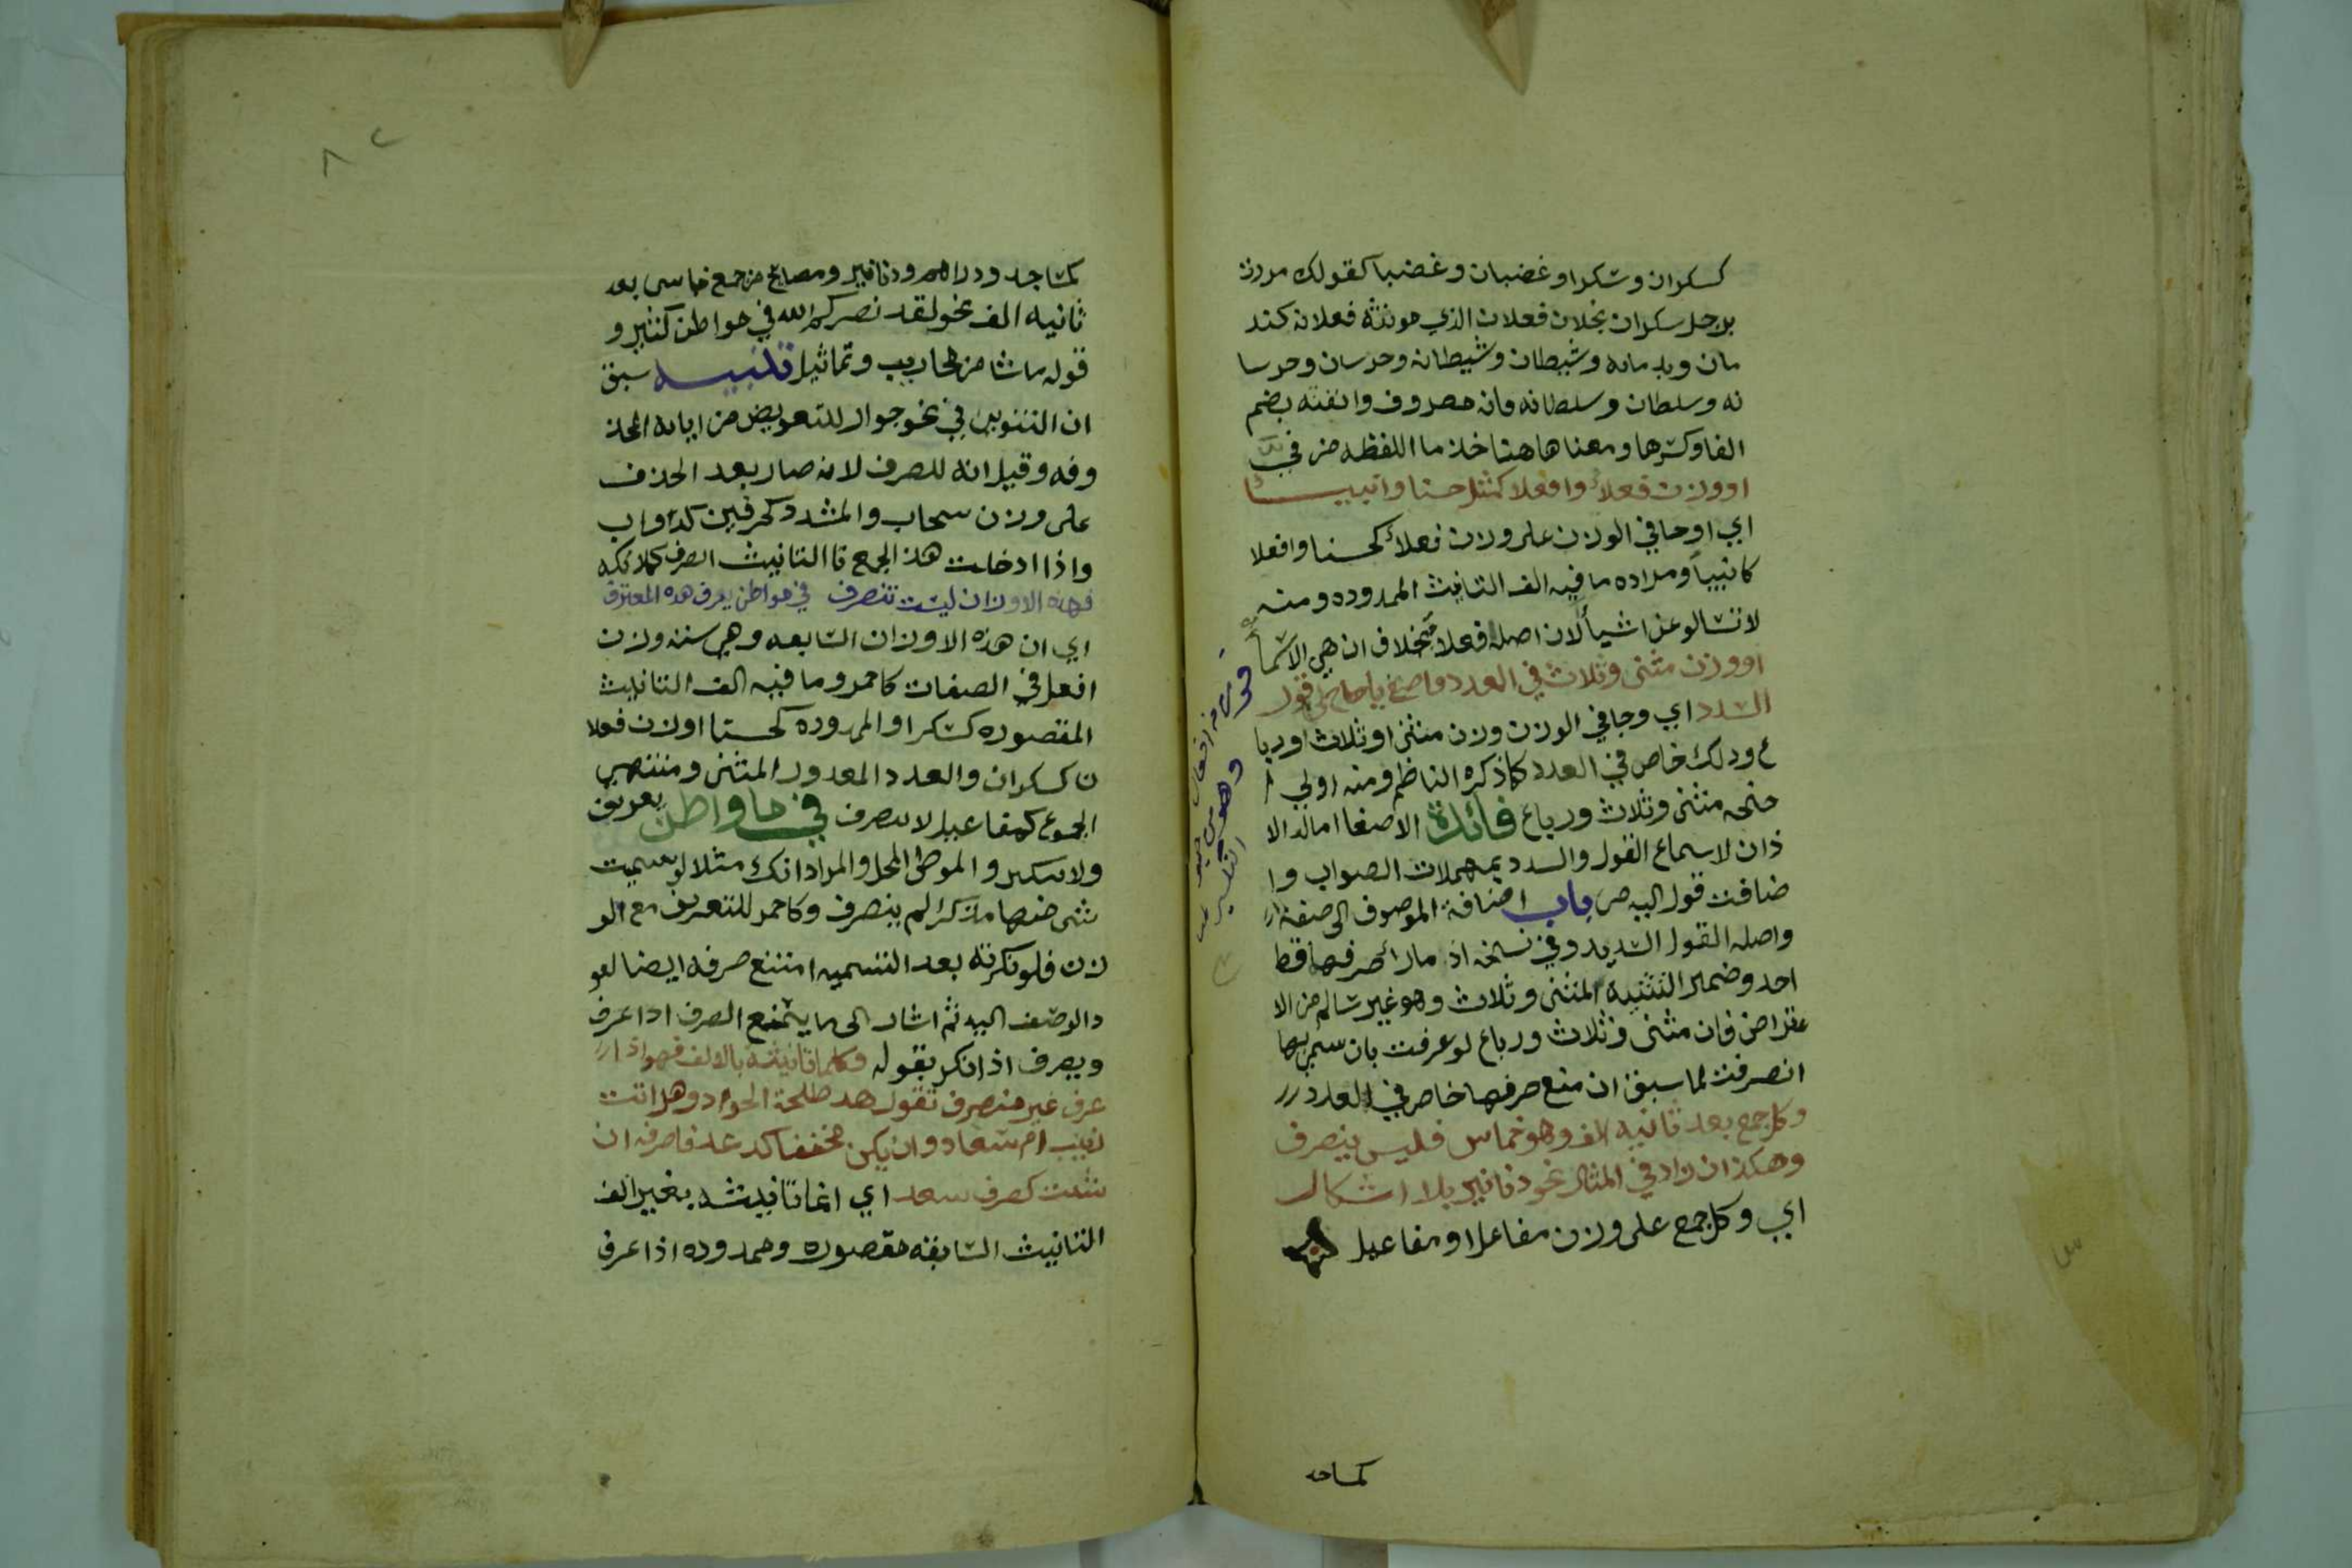 كسكران وسكرا وغضبان وغضبا كقولك مررت
برجل سكران بخلان فعلان الذي مونثه فعلانه كند
مان وندمانه وشيطان وشيطانه وحرسان وحرسا
نه وسلطان وسلطانه فانه مصروف وانفته بضم
الفا وكسرها ومعناها هنا خذ ما اللفظه من في
اووزن فعلاء وافعلا كمثل حسنا وانبيا
اي او جا في الوزن على وزن فعلاء كحسنا وافعلا
كانبيا ومراده ما فيه الف التانيث الممدوده ومنه
لا تسالو عن اشيأ لان اصله فعلا بخلاف ان هي الا اسما
او وزن مثنى وثلاث في العدد فاصغ ياصاح الى قول
السدد اي وجا في الوزن وزن مثنى او ثلاث اوربا
ع وذلك خاص في العدد كما ذكره الناظم ومنه اولي ا
جنحه مثنى وثلاث ورباع فائدة الاصغا امالة الا
ذان لاسماع القول والسدد بمهملات الصواب وا
ضافت قول اليه من باب اضافة الموصوف الى صفته
واصله القول السديد وفي نسخه اذ ما رأ صرفهما قط
احد وضمير التثنيه لمثنى وثلاث وهو غير سالم من الا
عتراض فان مثنى وثلاث ورباع لو عرفت بان سمي بها
انصرفت لما سبق ان منع صرفها خاص في العدد
وكل جمع بعد ثانيه الف وهو خماس فليس ينصرف
وهكذا ان زاد في المثال نحو دنانير بلا اشكال
اي وكل جمع على وزن مفاعل او مفاعيل
كمساجد
٨٢
كمساجد ودراهم ودنانير ومصابيح من جمع خماسي بعد
ثانيه الف نحو لقد نصركم الله في مواطن كثير و
قوله ما يشا من محاريب وتماثيل تنبيه سبق
ان التنوين في نحو جوار للتعويض من ايابه المحذ
وفه وقيل انه للصرف لانه صار بعد الحذف
على وزن سحاب والمشدد كحرفين كدواب
واذا ادخلت هذا الجمع تا التانيث انصرف كملائكه
فهذه الاوزان ليست تنصرف في مواطن يعرف هذه المعترف
اي ان هذه الاوزان السابعه وهي سته وزن
افعل في الصفات كاحمر وما فيه الف التانيث
المقصوره كسكرا والممدوده كحسنا اوزن فعلا
ن كسكران والعدد المعدول المثنى ومنتهي
الجموع كمفاعيل لا تنصرف في مواطن بعريف
ولا تنكير والموطن المحل والمراد انك مثلا لو سميت
شي منها مذكرا لم ينصرف وكاحمر للتعريف مع الو
زن فلو نكرته بعد التسميه امتنع صرفه ايضا لعو
د الوصف اليه ثم اشار الى ما يمتنع الصرف اذا عرف
ويصرف اذا نكر بقوله وكلما تانيثه بالالف فهو اذا
عرف غير منصرف تقول هذ طلحة الجواد وهل اتت
زينب ام سعاد وان يكن مخففا كدعد فاصرفه ان
شئت كصرف سعد اي انما تانيثه بغير الف
التانيث السابقه مقصوره وممدوده اذا عرف